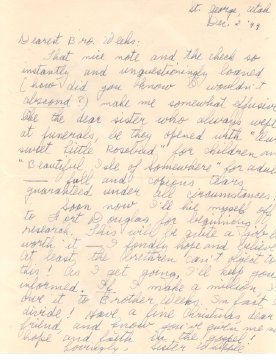 St. George Utah
Dec. 2 '49
Dearest Bro. Weeks:
That nice note and the check so
instantly and unquestioningly loaned
(how did you know I wouldn't
abscond?) make me somewhat effusive
like the dear sister who always wept
at funerals, be they opened with
sweet little Rosebud" for children an
"Beautiful Isle of Somewhere" for adu
— full and copious tears
guaranteed under all circumstances.
Soon now I'll hie myself off
to Fort Douglas for beginning
research. This will be quite a
worth it — I fondly hope and believe
At least, the brethren can't object to
this! As I get going, I'll keep you
informed. If I make a million I'll
give it to Brother Weeks. I'm fast
divide! Have a fine Christmas, dear
friend and know you've given me
hope and faith in the gospel!
Lovingly, Sister